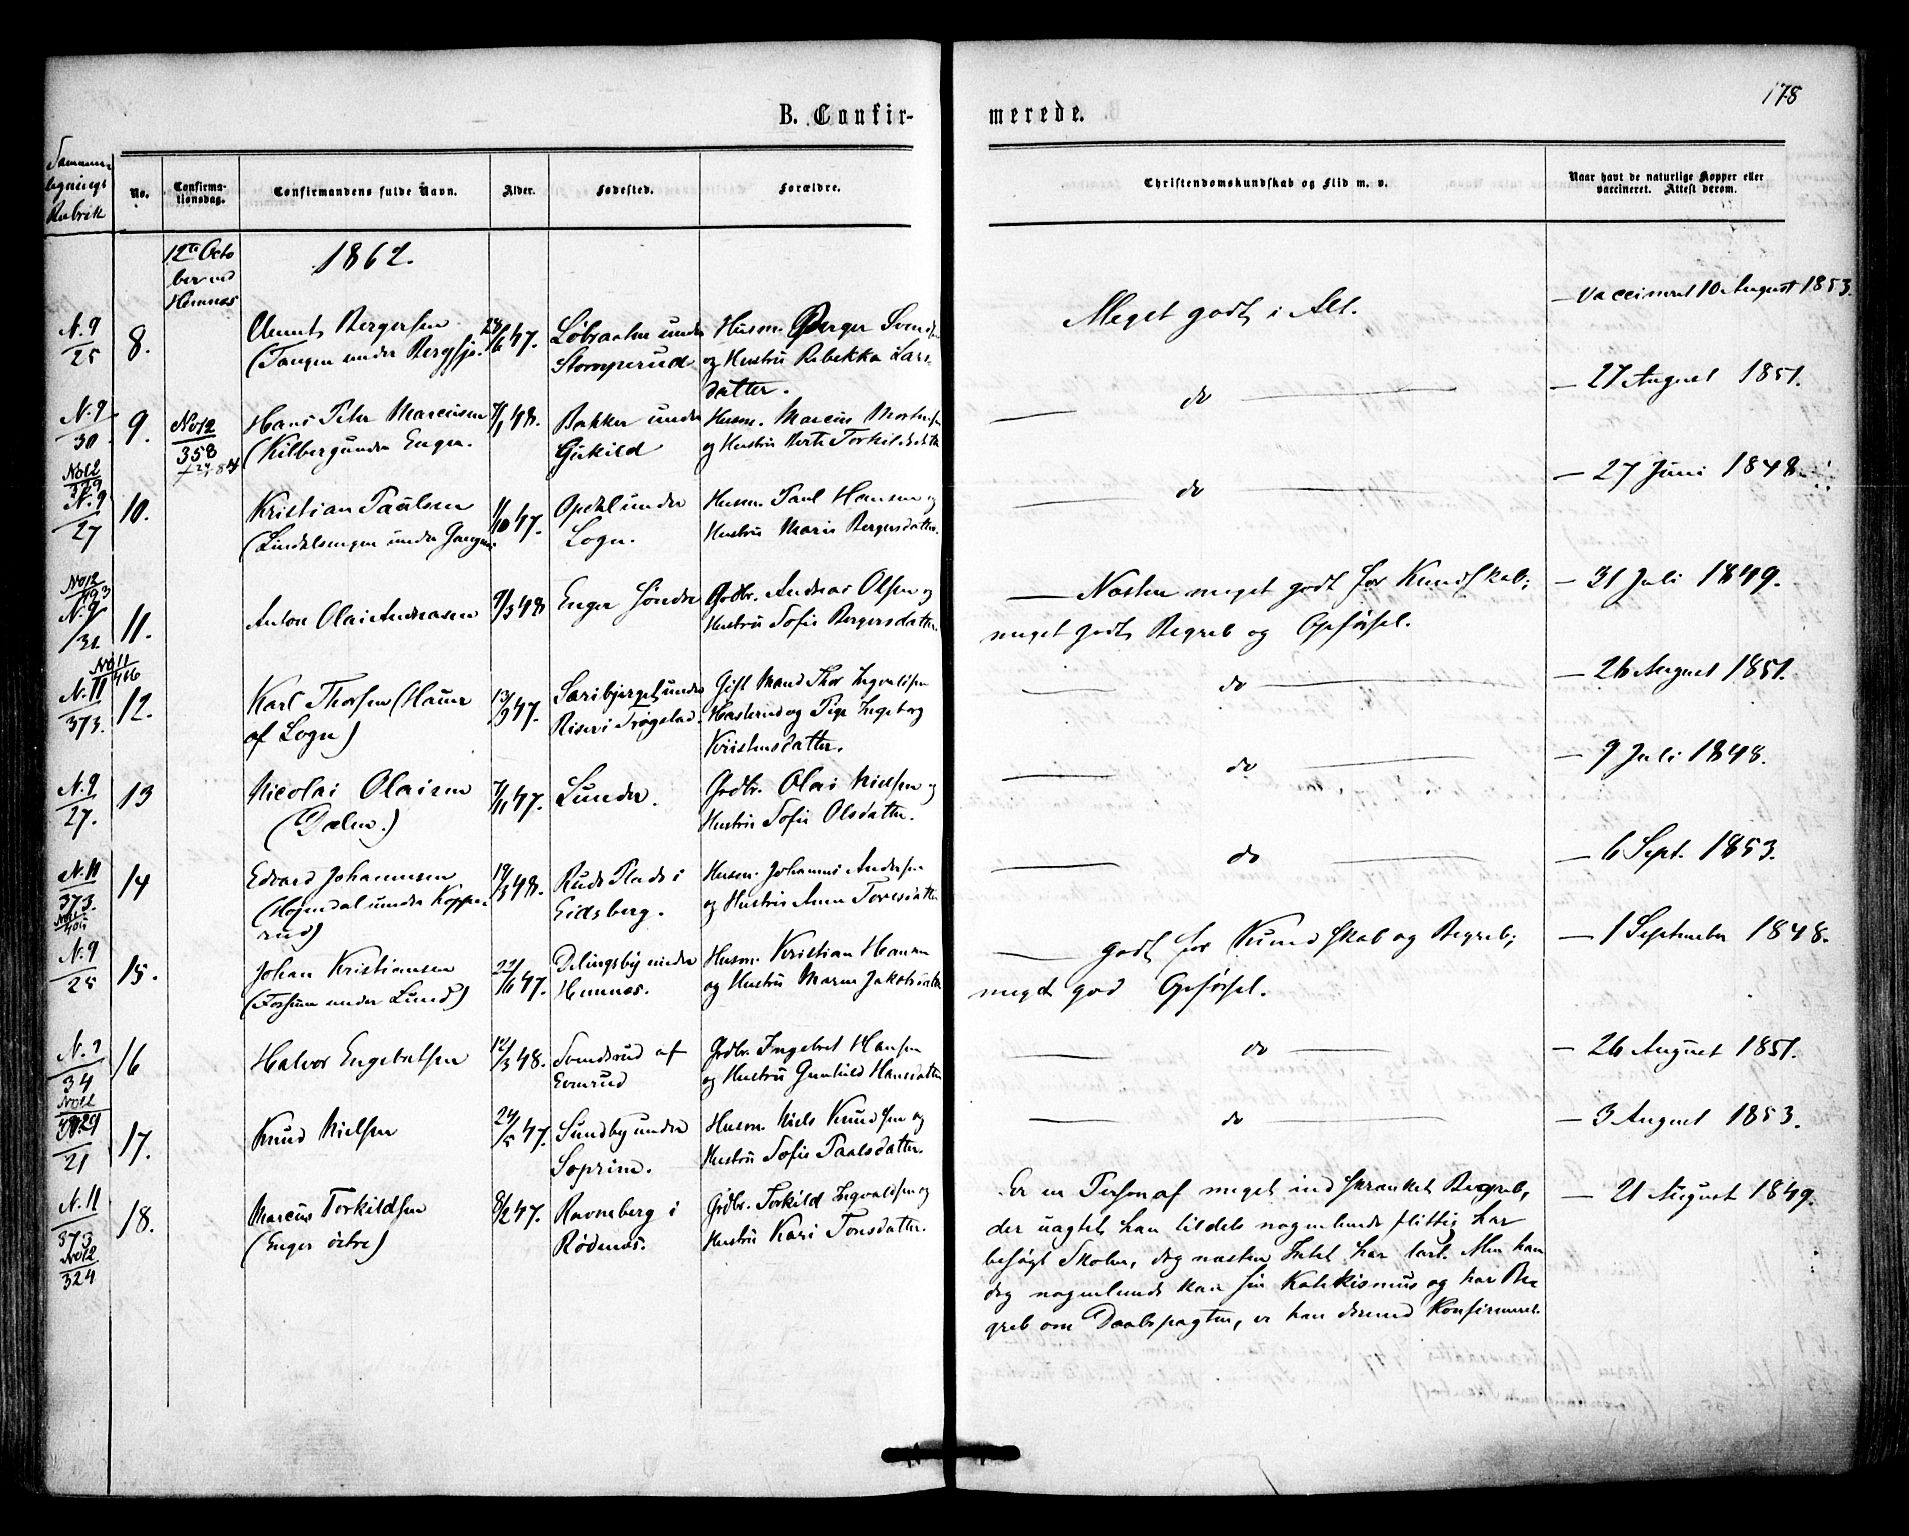 178
B. Confir-
merede.
Sammen-
lignings
Rubrik
No.
Confirma-
tionsdag.
Confirmandens fulde Navn.
Alder.
Fødested.
Forældre.
Christendomskundskab og Flid m. v.
Naar havt de naturlige Kopper eller
vaccineret. Attest derom.
12te Octo
ber ved
Hemnæs
1862.
N. 9
25
8.
Bergersen
(Tangen under Bergsjø.
/6 47.
under
Stomperud
Husm. Berger Svends
og Hustru Rebekka Lars-
datter.
Meget godt i Alt.
- Vaccineret 10 August 1853.
N. 9
30
9.
No 12
358
Hans Peter Marcusen
(Kilberg under Enger.
7/1 48.
Bakker under
Gukild
Husm. Marcus
og Hustru Berte Torkildsdtr
do
- 27 August 1851.
No 12
N. 9
27
10.
Kristian Paulsen
(Lindtangen under
1/10 47.
under
Sogn.
Husm. Paul Hansen og
Hustru Maria Bergersdatter.
do
- 27 Juni 1848
No 12
N. 9
31
11.
Anton Olai Andreasen
9/3 48
Enger Søndre
Grdbr. Andreas Olsen og
Hustru Sofie Bergersdatter.
Næsten meget godt for Kundskab;
meget godt Begreb og Opførsel.
- 31 Juli 1849.
No 11
416
N. 11
373.
12.
Karl Thorsen (Hauer
af Sogn)
13/9 47.
under
Riser i Trøgstad.
Gift Mand Thor Ingvaldsen
Hasterud og Pige Ingeborg
Kristensdatter.
do
- 26 August 1851.
N. 9
27.
13
Nicolai Olaisen
(Dælen.)
7/11 47.
Lunder.
Grdbr. Olai Nielsen og
Hustru Sofie Olsdatter.
do
- 9 Juli 1848.
N. 11
373.
14
Edvard Johannesen
(Højendal under Kopper
rud)
19/3 48.
Ruds Plads i
Eidsberg.
Husm. Johannes Andersen
og Hustru Anne Toresdatter
do
- 6 Sept. 1853.
N. 9
25
15.
Johan Kristiansen
(Fossum under Lund)
/6 47.
Delingsby under
Hemnæs.
Husm. Kristian Hansen
og Hustru Maren Jakobsdatter
godt for Kundskab og Begreb;
meget god Opførsel.
- 1 September 1848.
N. 9
34
16
Halvor Engebretsen
12/3 48.
Svendsrud af
Evenrud
Grdbr. Ingebret Hansen
og Hustru Gunhild Hansdatter
do
- 26 August 1851.
21
17.
Knud Nielsen
24/5 47.
Sundby under
Soprim.
Husm. Niels Knudsen og
Hustru Sofie Paulsdatter.
do
- 3 August 1853.
N. 11
373
No 12
324
18.
Marcus Torkildsen
(Enger østre)
8/2 47.
Ravneberg i
Rødenæs.
Grdbr. Torkild Ingvaldsen og
Hustru Kari Tonsdatter.
Er en Person af meget indskrænket Begreb,
der uagtet han tildels nogenlunde flittig har
besøgt Skolen, dog næsten Intet har lært. Men han
dog nogenlunde kan sin Katekismus og har Be
greb om Daabspagten, er han derved Konfirmeret.
- 21 August 1849.